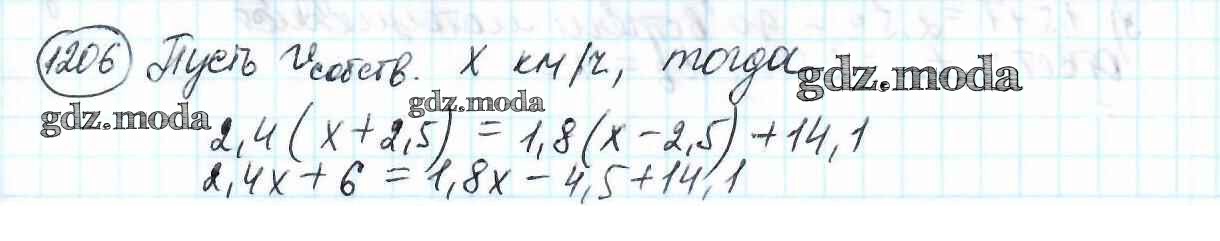 1206 Пусть Vсобств. x км/ч, тогда
gdz.moda
gdz.moda
gdz.moda
2,4(x+2,5) = 1,8(x-2,5)+14,1
2,4x+6 = 1,8x-4,5+14,1